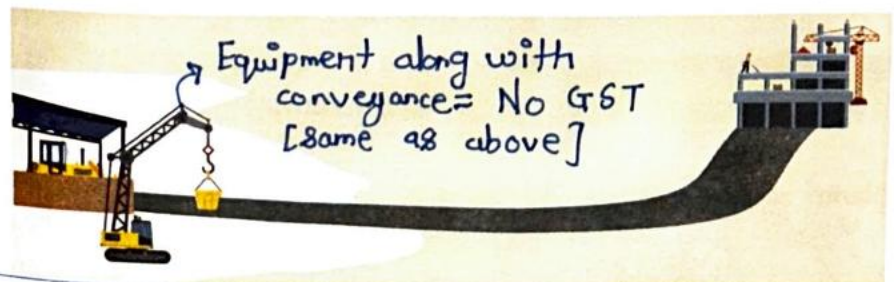 Equipment along with
conveyance= No GST
[same as above]